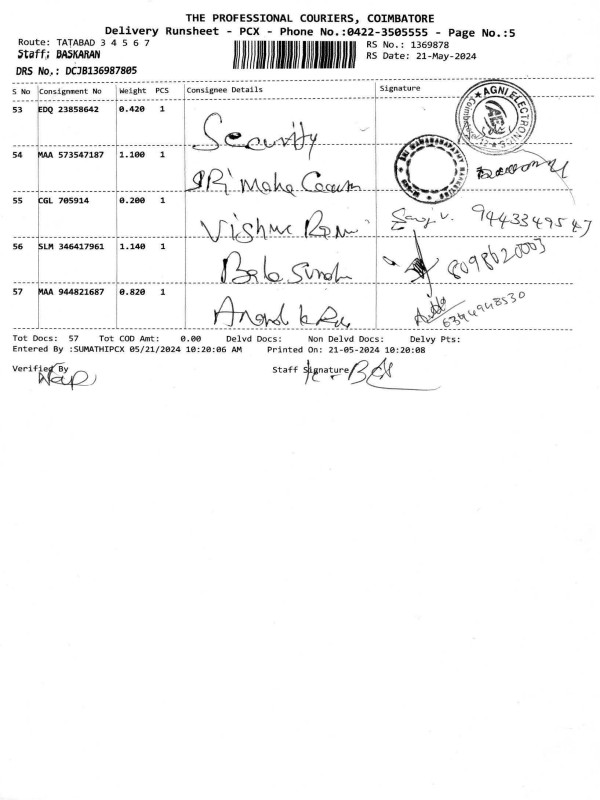 THE PROFESSIONAL COURIERS, COIMBATORE
Delivery Runsheet - PCX - Phone No.:0422-3505555 - Page No.:5
Route: TATABAD 3 4 5 6 7 RS No.: 1369878
Staff: BASKARAN RS Date: 21-May-2024
DRS No.: DCJB136987805
S No Consignment No Weight PCS Consignee Details Signature
53 EDQ 23858642 0.420 1 Security AGNI ELECTRONICS Coimbatore
54 MAA 573547187 1.100 1 SRi Maha
55 CGL 705914 0.200 1 Vishnu 9443349547
56 SLM 346417961 1.140 1 Bala 8098620003
57 MAA 944821687 0.820 1 Anand 6394948530
Tot Docs: 57 Tot COD Amt: 0.00 Delvd Docs: Non Delvd Docs: Delvy Pts:
Entered By :SUMATHIPCX 05/21/2024 10:20:06 AM Printed On: 21-05-2024 10:20:08
Verified By Staff Signature